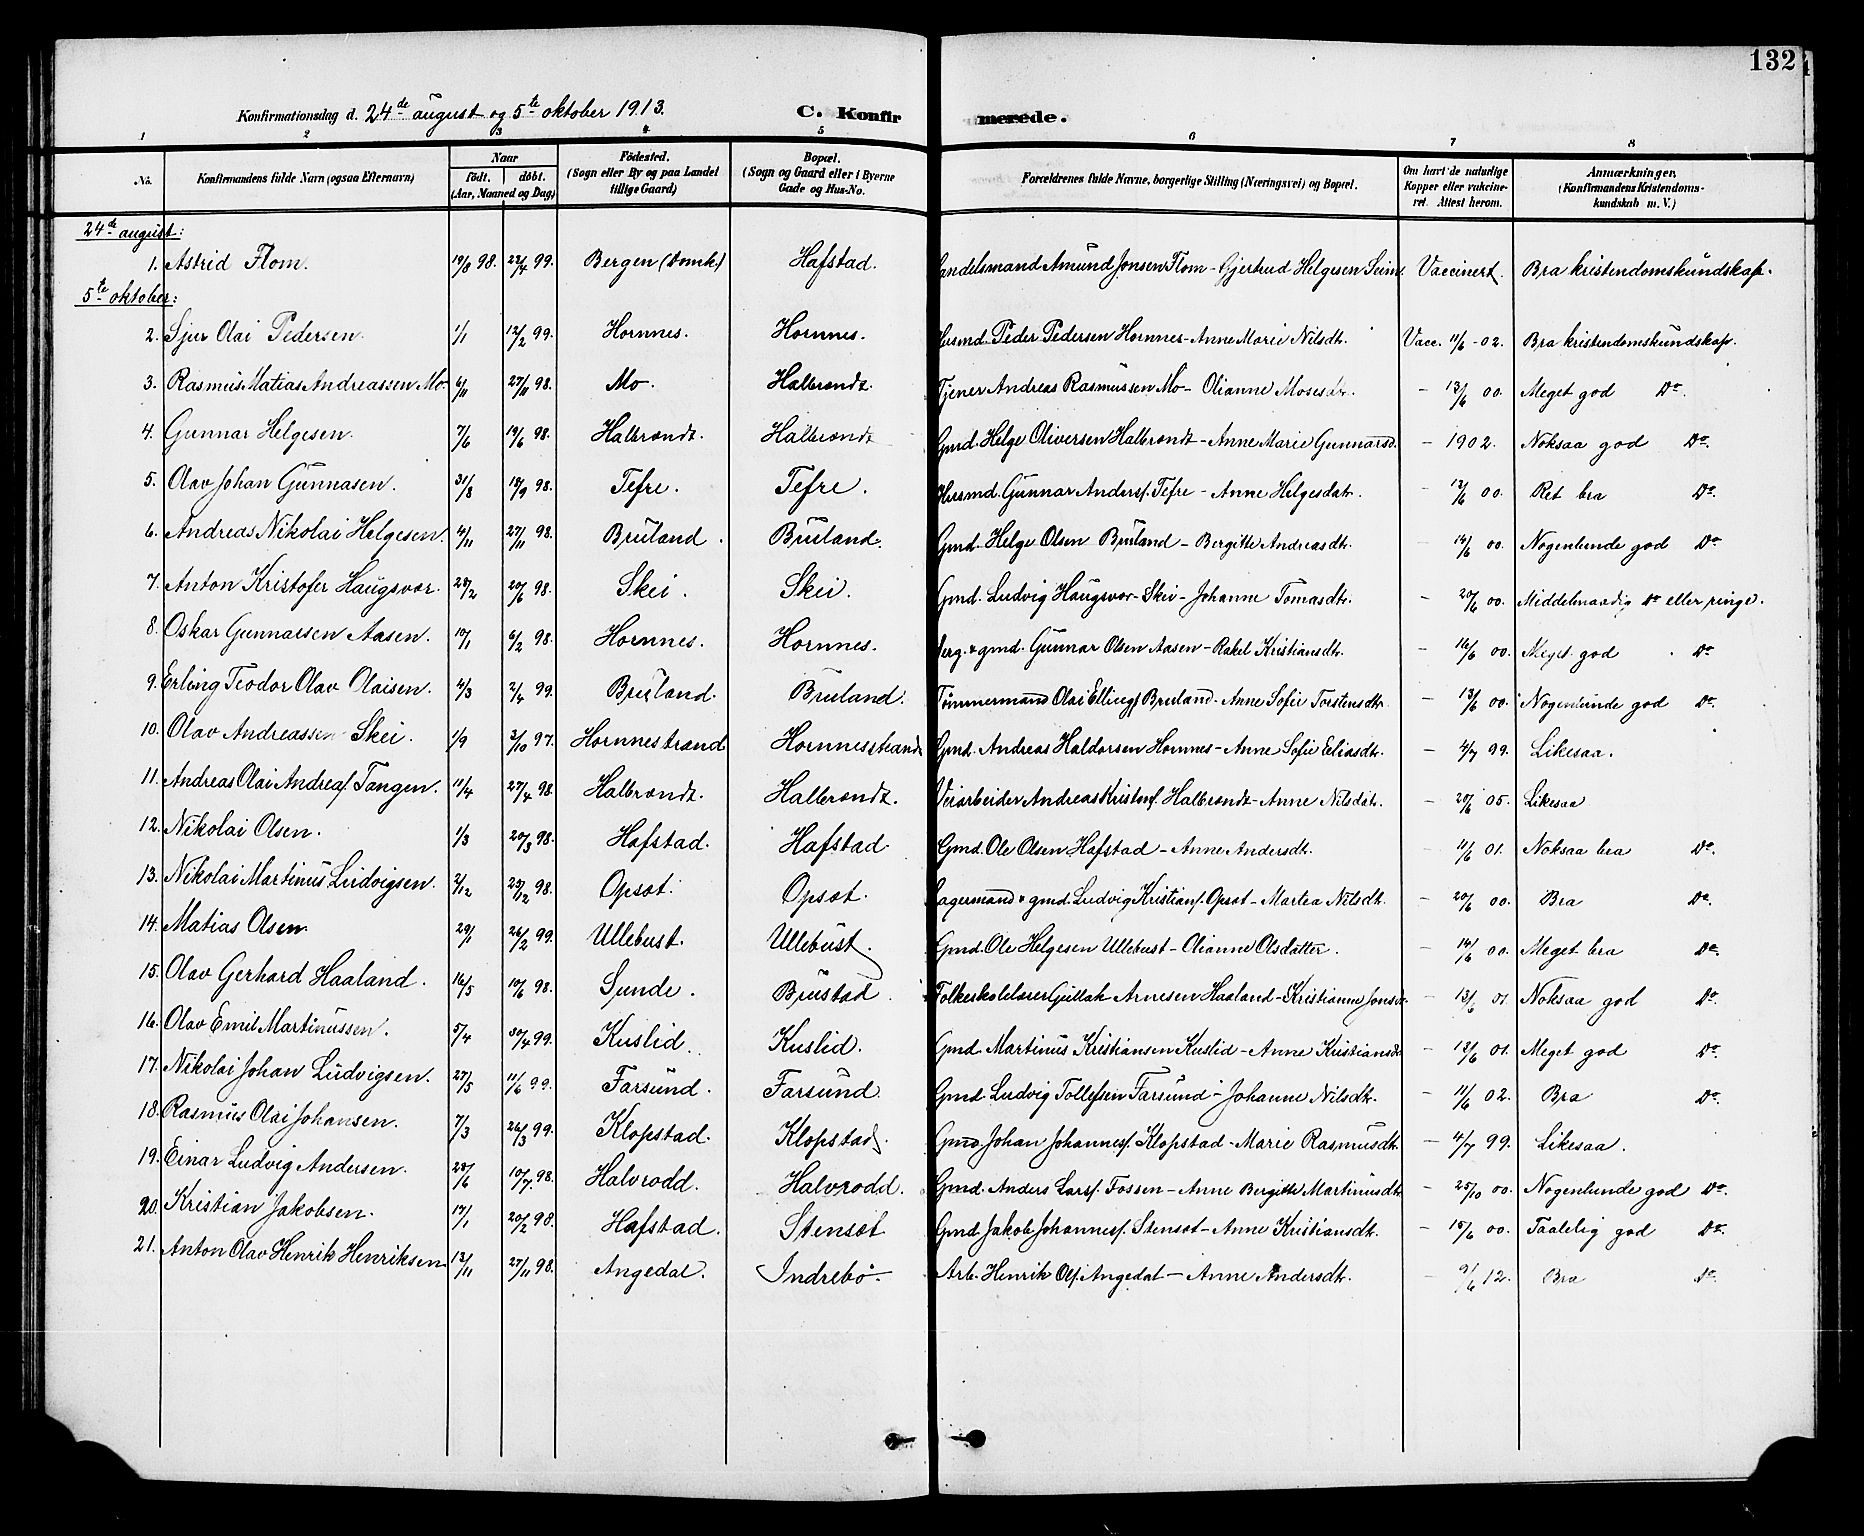 132
Konfirmationsdag d. 24de august og 5te oktober 1913. C. Konfirmerede.
1 2 3 4 5 6 7 8
No. Konfirmandens fulde Navn (ogsaa Efternavn) Naar født. døbt. (Aar, Maaned og Dag) Födested. (Sogn eller By og paa Landet tillige Gaard) Bopæl. (Sogn og Gaard eller i Byerne Gade og Hus-No. Forældrenes fulde Navne, borgerlige Stilling (Næringsvei) og Bopæl. Om havt de naturlige Kopper eller vakcineret. Attest herom. Anmærkninger. (Konfirmandens Kristendomskundskab m. V.)
24de august:
1. Astrid Flom. 19/8 98. 22/4 99. Bergen (Domk.) Hafstad. Handelsmand Amund Jonsen Flom - Gjertrud Helgesen Seim. Vaccinert Bra kristendomskundskap.
5te oktober:
2. Sjur Olai Pedersen. 1/1 12/2 99. Hornnes. Hornnes. Husmd. Peder Pedersen Hornnes - Anne Marie Nilsdtr. Vacc. 11/6 - 02. Bra kristendomskundskap.
3. Rasmus Matias Andreassen Mo. 6/11 27/11 98. Mo. Halbrendt. Tjener Andreas Rasmussen Mo - Olianne Mosesdtr. - 13/6 00. Meget god Do.
4. Gunnar Helgesen. 7/6 19/6 98. Halbrendt. Halbrendt Gmd. Helge Oliversen Halbrendt - Anne Marie Gunnarsd. - 1902. Noksaa god Do.
5. Olav Johan Gunnasen. 31/8 18/9 98. Tefre. Tefre. Husmd. Gunnar Anders. Tefre - Anne Helgesdatr. - 13/6 00. Ret bra Do.
6. Andreas Nikolai Helgesen. 4/11 27/11 98. Bruland. Bruland. Gmd. Helge Olsen Bruland - Bergitte Andreasdtr. - 14/6 00. Nogenlunde god Do
7. Anton Kristofer Haugsvar. 28/2 20/6 98. Skei. Skei. Gmd. Ludvig Haugsvar - Skei - Johanne Tomasdtr. - 20/6 00. Middelmaadig Do eller ringe.
8. Oskar Gunnarsen Aasen. 10/1 6/2 98. Hornnes. Hornnes. Serg. & gmd. Gunnar Olsen Aasen - Rakel Kristiansdtr. - 16/6 00. Meget god Do
9. Erling Teodor Olav Olaisen. 4/3 2/4 99. Bruland. Bruland. Tømmermand Olai Ellings. Bruland - Anne Sofie Torstensdtr. - 13/6 00. Nogenlunde god Do.
10. Olav Andreassen Skei. 1/9 3/10 97. Hornnestrand Hornnesstrand Gmd. Andreas Haldorsen Hornnes - Anne Sofie Eliasdtr. - 4/7 99. Likesaa.
11. Andreas Olai Andreas. Tangen. 11/4 27/4 98. Halbrendt. Halbrendt. Veiarbeider Andreas Kristens. Halbrendt - Anne Nilsdtr. - 20/6 05. Likesaa
12. Nikolai Olsen. 1/3 20/3 98. Hafstad. Hafstad Gmd. Ole Olsen Hafstad - Anne Andersdtr. - 11/6 01. Noksaa bra Do.
13. Nikolai Martinus Ludvigsen. 2/12 29/12 98. Opsøt. Opsøt. Lagermand & gmd. Ludvig Kristians. Opsøt - Martea Nilsdtr. - 20/6 00. Bra Do.
14. Matias Olsen. 29/1 26/2 99. Ullebust. Ullebust. Gmd. Ole Helgesen Ullebust - Olianne Olsdatter. - 14/6 00. Meget bra Do.
15. Olav Gerhard Haaland. 16/5 10/6 98. Sunde. Brustad. Folkeskolelærer Gullak Arnesen Haaland - Kristianne Jonsdtr. - 13/6 01. Noksaa god Do.
16. Olav Emil Martinussen. 5/4 30/4 99. Kuslid. Kuslid. Gmd. Martinus Kristiansen Kuslid - Anne Kristiansdtr - 13/6 01. Meget god Do.
17. Nikolai Johan Ludvigsen. 27/5 11/6 99. Farsund. Farsund. Gmd. Ludvig Tollefsen Farsund - Johanne Nilsdtr. - 11/6 02. Bra Do.
18. Rasmus Olai Johansen. 7/3 26/3 99. Klopstad. Klopstad. Gmd. Johan Johannes. Klopstad - Marie Rasmusdtr. - 4/7 99. Likesaa.
19. Einar Ludvig Andersen. 28/6 10/7 98. Halvrodd. Halvrodd. Gmd. Anders Lars. Fossen - Anne Bergitte Martinusdtr. - 25/10 00. Nogenlunde god Do.
20. Kristian Jakobsen. 17/1 20/2 98. Hafstad. Stensøt Gmd. Jakob Johannes. Stensøt - Anne Kristiansdtr. - 15/6 00. Taalelig god Do.
21. Anton Olav Henrik Henriksen 13/11 27/11 98. Angedal. Indrebø. Arb. Henrik Ols. Angedal - Anne Andersdtr. - 9/6 12. Bra Do.